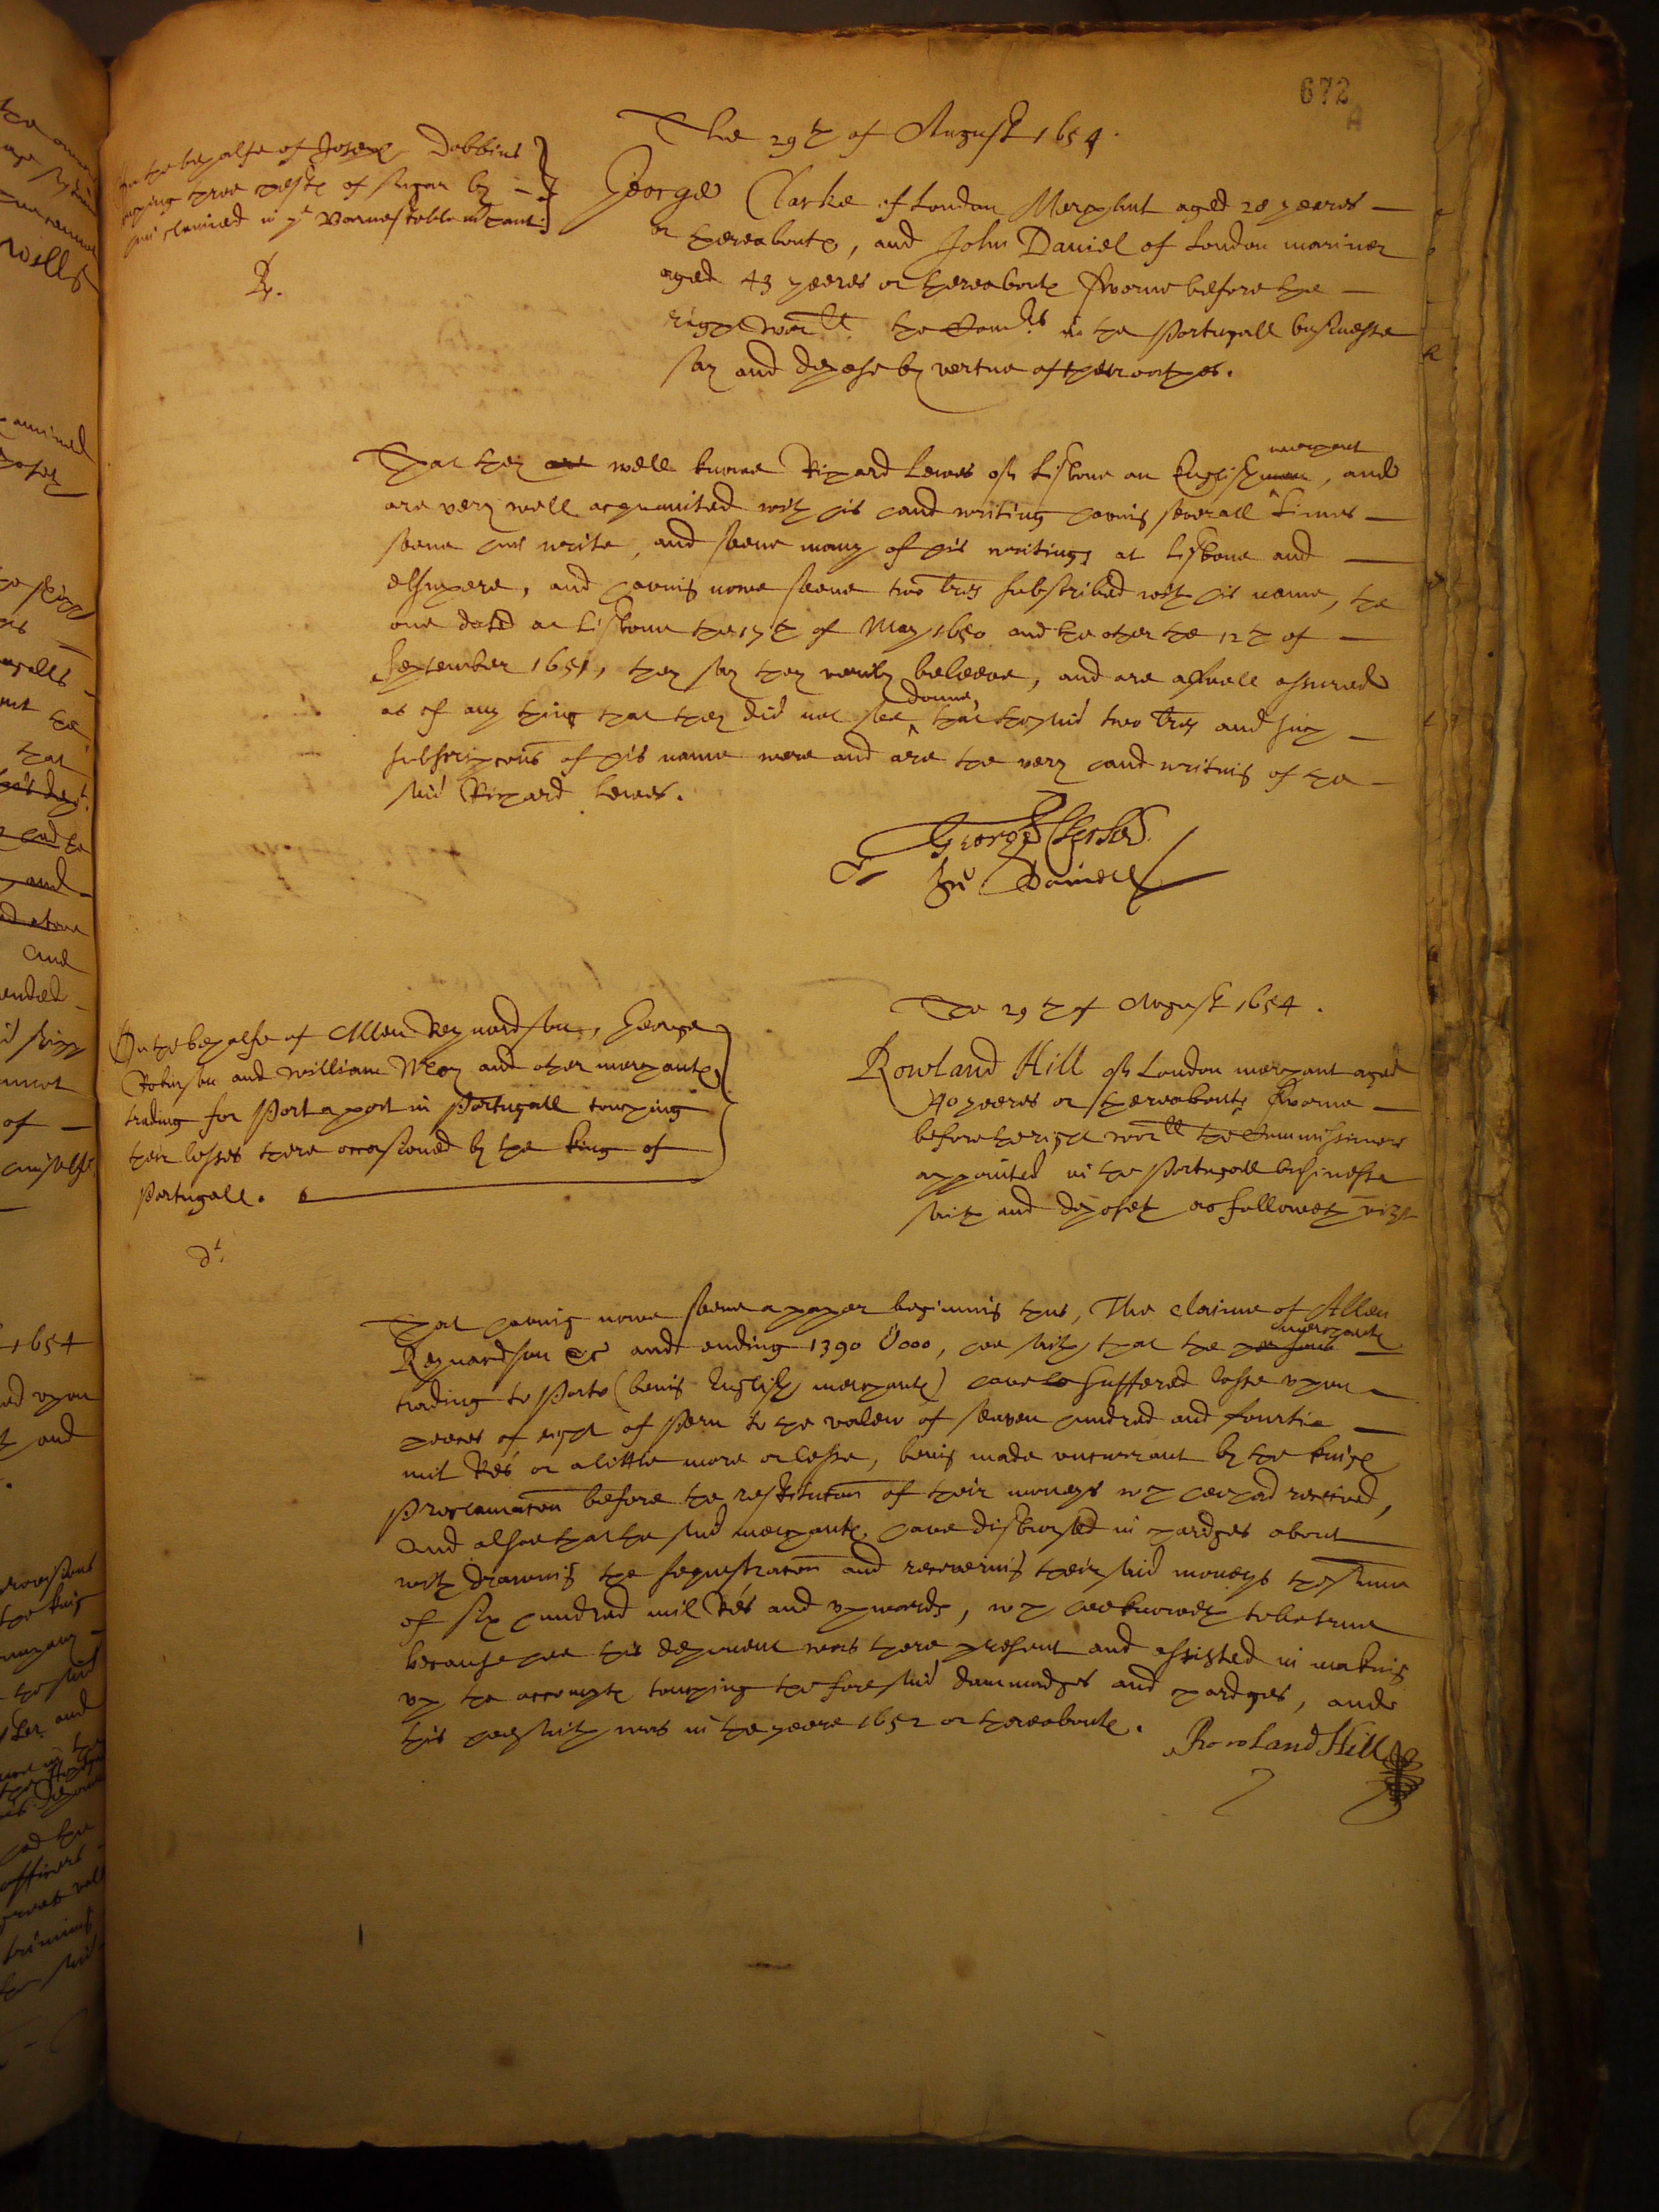 672
A
The 29th of August 1654.
On the behalfe of Joseph Dobbins
touching three chests of sugar by
him claimed in ye Barnestable mrchant.
R.
George Clarke of London Merchant aged 28 yeeres
or thereabouts, and John Daniel of London mariner
aged 43 yeeres or thereabouts sworne before the
right worll the Comrs in the Portugall businesse
say and depose by vertue of their oathes.
That they are well knowe Richard Lewes of Lisbone an English man merchant, and
are very well acquainted with his hand writing having severall times
seene him write, and seene many of his writings at Lisbone and
elsewhere, and having nowe seene two lres subscribed with his name, the
one dated at Lisbone the 17th of May 1650 and the other the 12th of
September 1651, they say they verily beleeve, and are as well assured
as of any thing that they did not see donne, that the said two lres and such
subscripcons of his name were and are the very hand writing of the
said Richard Lewes.
George Clarke
Jn Daniell
On the behalfe of Allen Reynardson, George
Robinson and William Wray and other merchants
trading for Port a port in Portugall touching
their losses there occasioned by the king of
Portugall.
dt.
The 29th of August 1654.
Rowland Hill of London merchant aged
40 yeeres or thereabouts sworne
before the right worll the Commissioners
appointed in the Portugall businesse
saith and deposeth as followeth vizt
That having nowe seene a paper beginning thus, The claime of Allen
Reynardson &c and ending 1390 U000, hee saith that the persons merchants
trading to Porto (being English merchants) have suffered losse upon
peeces of eight of Peru to the valew of seaven hundred and fourtie
mil Res or a little more or lesse, being made uncurrant by the kings
Proclamacon before the restitucon of their moneys wch hee had received,
And alsoe that the said merchants have disbursed in chardges about
with drawing the sequestracon and recovering their said moneys the summ
of six hundred mil Res and upwards, wch hee knoweth to be true
because hee this deponent was there present and assisted in making
up the accompts touching the foresaid dammadges and chardges, and
this hee saith was in the yeere 1652 or thereabouts.
Rowland Hill